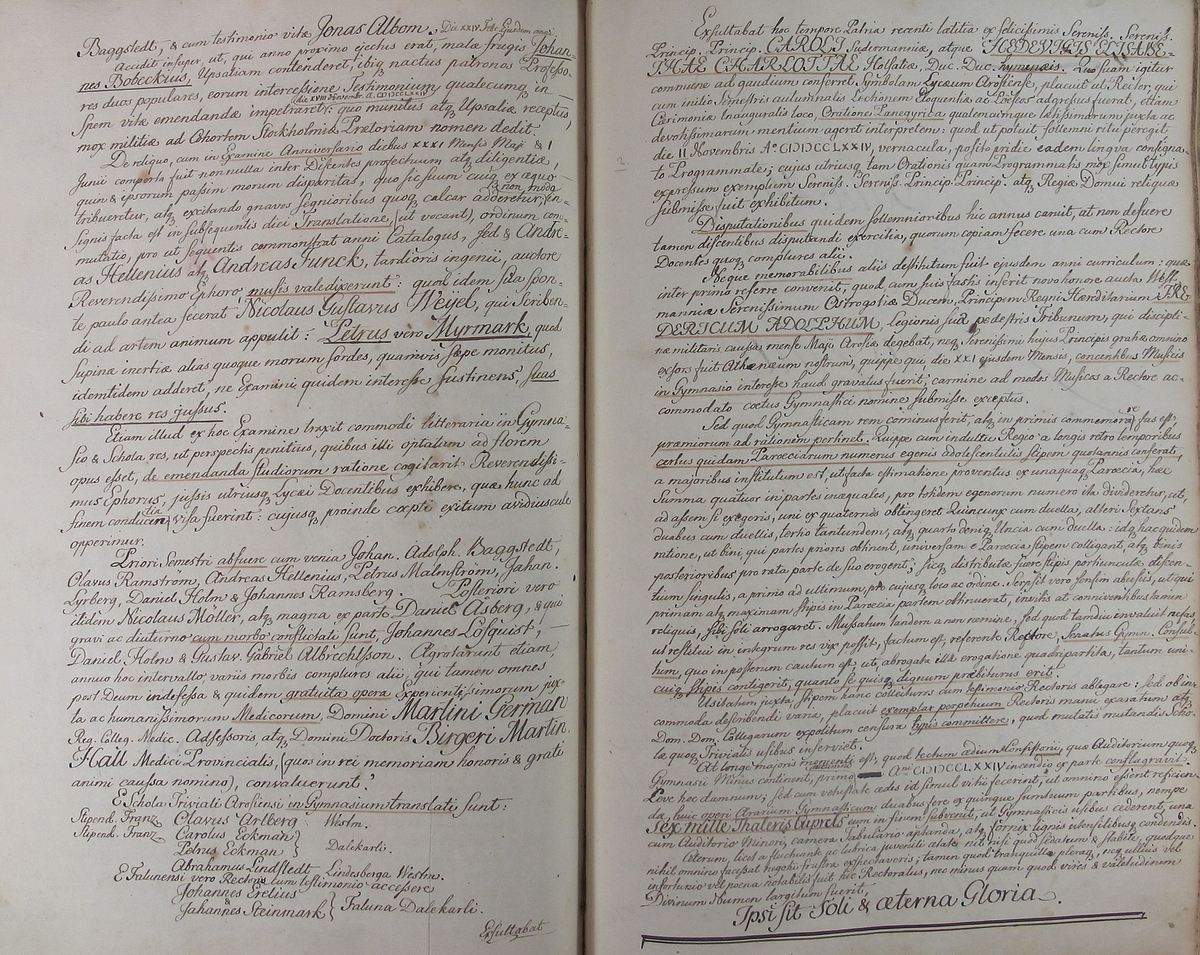 Baggstedt, & cum testimonio vitæ Jonas Albom. Die XXIV Febr. Ejusdem anni
Accidit insuper, ut, qui anno proximo ejectus erat, malæ frugis Johan-
nes Bobeckius, Upsaliam contenderet, ibiq nactus patronos Professo-
res duos populares, eorum intercessione Testimonium qualecumq in
spem vitæ emendandæ impetraret: quo munitus atq Upsaliæ receptus,
mox militiæ ad Cohortem Stockholmiæ Prætoriam nomen dedit.
De reliquo, cum in Examine Anniversario diebus XXXI Mensis Maji & I
Junii comperta fuit nonnulla inter Discentes profectuum atq diligentiæ,
quin & ipsorum passim morum disparitas, quo sic suum cuiq ex æquo
tribueretur, atq excitando gnavos segnioribus quoq calcar adderetur; & non modo in-
signis facta est in subsequentis diei Translatione, (ut vocant), ordinum com-
mutatio, pro ut sequentis commonstrat anni Catalogus, sed & Andre-
as Hellenius atq Andreas Funck, tardioris ingenii, auctore
Reverendissimo Ephoro musis valedixerunt: quod idem sua spon-
te paulo antea fecerat Nicolaus Gustavus Weyel, qui scriben-
di ad artem animum appulit: Petrus vero Myrmark, quod
supinæ inertiæ alias quoque morum sordes, quamvis sæpe monitus,
identidem adderet, ne Examini quidem interesse sustinens, suas
sibi habere res jussus.
Etiam illud ex hoc Examine traxit commodi litteraria in Gymna-
sio & Schola res, ut perspectis penitius, quibus illi optatum ad florem
opus esset, de emendanda studiorum ratione cogitarit Reverendissi-
mus Ephorus, jussis utriusq Lycæi Docentibus exhibere, quæ hunc ad
finem conducentia visa fuerint: cujusq proinde cœpti exitum avidiuscule
opperimur.
Priori Semestri abfuere cum venia Johan. Adolph. Baggstedt,
Olavus Ramstrom, Andreas Hellenius, Petrus Malmström, Johan.
Lyrberg, Daniel Holm & Johannes Ramsberg. Posteriori vero
itidem Nicolaus Möller, atq magna ex parte Daniel Asberg, & qui
gravi ac diuturno cum morbo conflictati sunt, Johannes Löfquist,
Daniel Holm & Gustav. Gabriel Albrechtsson. Ægrotarunt etiam,
annuo hoc intervallo, variis morbis complures alii, qui tamen omnes
post Deum indefessa & quidem gratuita opera Experientissimorum jux-
ta ac humanissimorum Medicorum, Domini Martini German
Reg. Colleg. Medic. Adsessoris, atq Domini Doctoris Birgeri Martin
Hall Medici Provincialis, (quos in rei memoriam honoris & grati
animi caussa nomino), convaluerunt.
E Schola Triviali Arosiensi in Gymnasium translati sunt:
Stipend. Franz. Clavus Arlberg Westm.
Stipend. Franz. Carolus Eckman
Petrus Eckman } Dalekarli.
Abrahamus Lindstedt Lindesberga Westm.
E Falunensi vero Rectoris cum testimonio accessere
Johannes Erelius
& Johannes Steinmark } Faluna Dalekarli.
Exsultabat
Exsultabat hoc tempore Patria recenti lætitia ex felicissimis Sereniss. Sereniss.
Princip. Princip. CAROLI Sudermanniæ, atque HEDEVIGIS ELISABE-
THAE CHARLOTTAE Holsatiæ, Duc. Duc. hymenæis. Quo suam igitur
commune ad gaudium conferret Symbolam Lycæum Arosiense, placuit ut Rector, qui
cum initio Semestris autumnalis Lectionem Eloquentiæ ac Poëseos adgressus fuerat, etiam
Cærimoniæ Inauguralis loco, Oratione Panegyrica qualemcumque lætissimarum juxta ac
devotissimarum mentium ageret interpretem: quod ut potuit sollemni ritu peregit
die 11 Novembris Aº. CIƆIƆCCLXXIV, vernacula, posito pridie eadem lingva consigna-
to Programmate; cujus utriusq tam Orationis quam Programmatis mox simul typis
expressum exemplum Sereniss. Sereniss. Princip. Princip. atq Regiæ Domui reliquæ
submisse fuit exhibitum.
Disputationibus quidem sollemnioribus hic annus caruit, at non defuere
tamen discentibus disputandi exercitia, quorum copiam fecere una cum Rectore
Docentes quoq complures alii.
Neque memorabilibus aliis destitutum fuit ejusdem anni curriculum: quæ
inter primo referre convenit, quod, cum suis fastis inserit novo honore aucta West-
mannia Serenissimum Ostrogotiæ Ducem, Principem Regni Hæreditarium FRE
DERICUM ADOLPHUM, legionis suæ pedestris Tribunum, qui discipli-
næ militaris caussa mense Maji Arosiæ degebat, neq Serenissimi hujus Principis gratiæ omnino
exsors fuit Athenæum nostrum, quippe qui die XXI ejusdem Mensis, concentibus Musicis
in Gymnasio interesse haud gravatus fuerit; carmine ad modos Musicos a Rectore ac-
commodato cœtus Gymnastici nomine submisse exceptus.
Sed quod Gymnasticam rem cominus ferit, atq in primis commemorare fas est,
præmiorum ad rationem pertinet. Quippe cum indultu Regio a longis retro temporibus
certus quidam Parœciarum numerus egenis adolescentulis stipem quotannis conferat,
a majoribus institutum est, ut facta æstimatione, proventus ex unaquaq Parœcia, hæc
summa quatuor in partes inæquales, pro totidem egenorum numero ita divideretur, ut,
ad assem si exegeris, uni ex quaternis obtingeret Quincunx cum duella, alteri Sextans
duabus cum duellis, tertio tantundem, atq quarto deniq Uncia cum duella: idq hac quidem
ratione, ut bini, qui partes priores obtinent, universam e Parœcia stipem colligant, atq binis
posterioribus pro rata parte de suo erogent; sicq distributæ fuere stipis portiunculæ discen-
tium singulis, a primo ad ultimum, pro cujusq loco ac ordine. Serpsit vero sensim abusus, ut qui
primam atq maximam stipis in Parœcia partem obtinuerat, invitis at conniventibus tamen
reliquis, sibi soli arrogaret. Mussatum tandem a non nemine, sed quod tamdiu invaluit nefas
ut restitui in integrum res vix possit, factum est, referente Rectore, Senatus Gymn. Consul-
tum, quo in posterum cautum est; ut, abrogata illa erogatione quadripartita, tantum uni-
cuiq stipis contigerit, quanto se quisq dignum præbiturus erit.
Usitatum juxta stipem hanc collecturos cum testimonio Rectoris ablegare; sed ob in-
commoda describendi varia, placuit exemplar perpetuum Rectoris manu exaratum atq
Dom. Dom. Collegarum expolitum censura typis committere, quod mutatis mutandis Scho-
læ quoq Triviali usibus inserviet.
At longe majoris momenti est, quod tectum ædium Consistorii, quæ Auditorium quoq
Gymnasii Minus continent, primo Aⁿⁱ CIƆIƆCCLXXIV incendio ex parte conflagravit.
Leve hoc damnum; sed cum vetustate ædes id simul vitii fecerint, ut omnino essent reficien-
dæ, huic operi Ærarium Gymnasticum duabus fere ex quinque sumtuum partibus, nempe
sex mille Thaleris Cupreis cum in finem subvenit, ut Gymnasticis usibus cederent, una
cum Auditorio Minori, camera Tabulario aptanda, atq fornix lignis utensilibus condendis.
Ceterum, licet a fluctuante ac lubrica juventuti ætate nil nisi quod sedatum & stabile, quodque
nihil omnino facessat negotii, frustra exspectaveris; tamen quod tranquilla pleraq, neq ullius vel
infortunio vel pœna notabilis fuit hic Rectoratus, nec minus quam quod vires & valetudinem
Divinum Numen largitum fuerit,
Ipsi sit Soli & æterna Gloria.